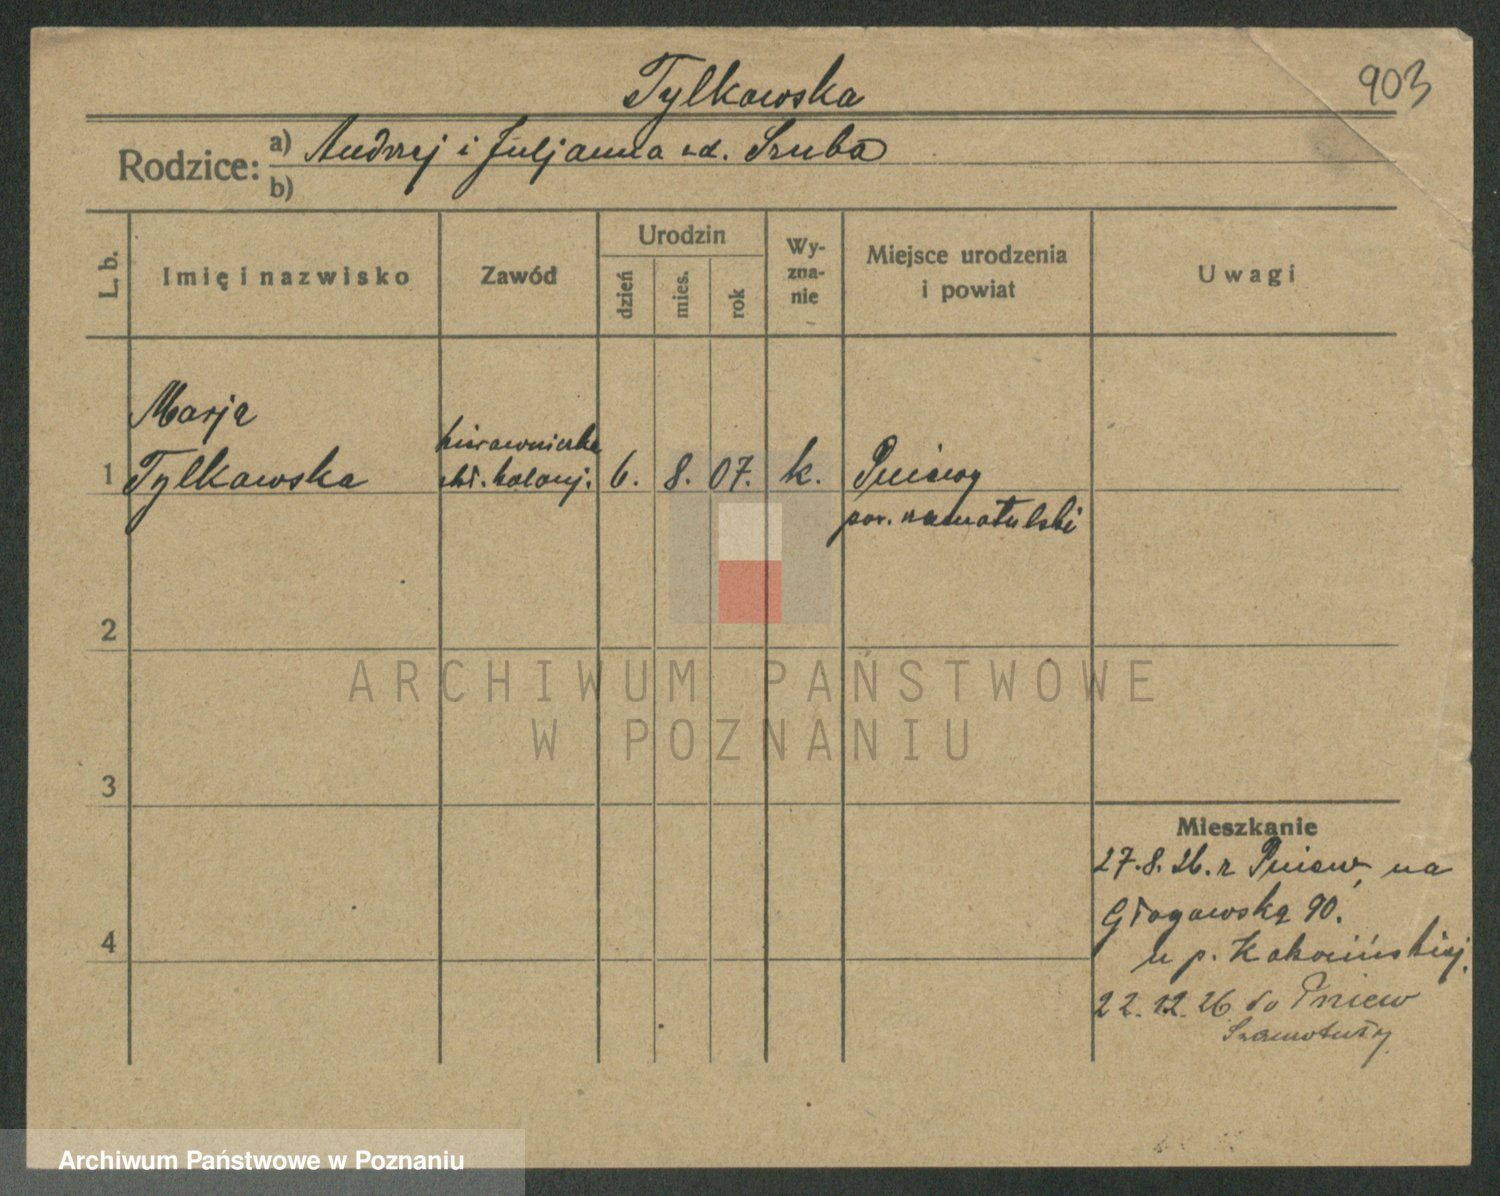 903
Tylkowska
Rodzice: a) Andrzej i Juljanna zd. Szuba
b)
L. b.
Imię i nazwisko
Zawód
Urodzin
dzień
mies.
rok
Wy-
zna-
nie
Miejsce urodzenia
i powiat
Uwagi
Marja
1 Tylkowska
kierowniczka
skł. kolonj.
6. 8. 07. k. Pniewy
pow. szamotulski
2
3
4
Mieszkanie
27.8.26. z Pniew, na
Głogowską 90.
u p. Kokocińskiej.
22.12.26 do Pniew
Szamotuły
ARCHIWUM PAŃSTWOWE
W POZNANIU
Archiwum Państwowe w Poznaniu